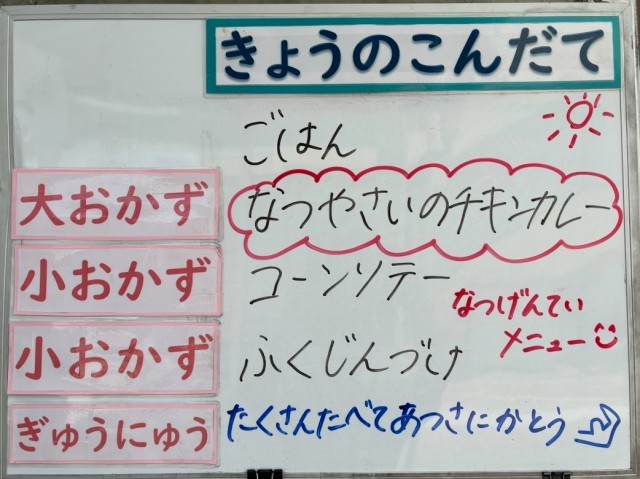 きょうのこんだて
ごはん
大おかず なつやさいのチキンカレー
小おかず コーンソテー
なつげんてい
メニュー
小おかず ふくじんづけ
ぎゅうにゅう たくさんたべてあつさにかとう